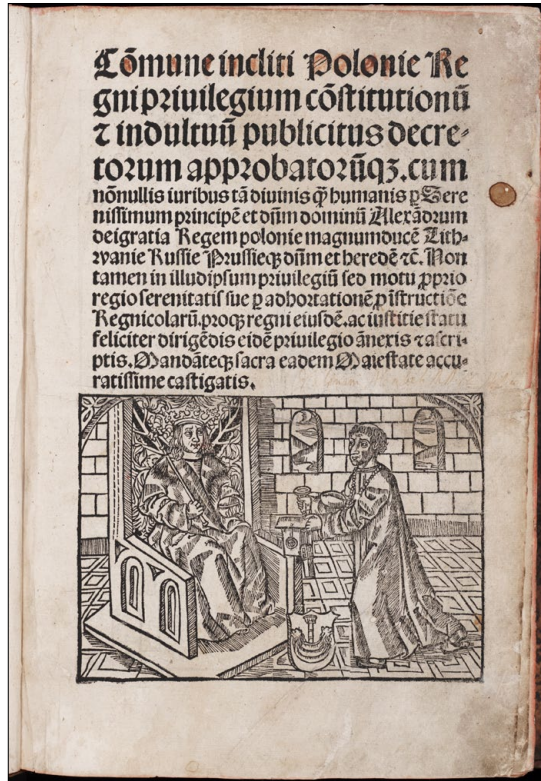 Cōmune incliti Polonie Re
gni priuilegium cōstitutionū
⁊ indultuū publicitus decre⸗
torum approbatorūqꝫ. cum
nōnullis iuribus tā diuinis qꝫ̄ humanis ꝑ Sere
nissimum principē et dn̄m dominū Alexādrum
deigratia Regem polonie magnumducē Lith⸗
wanie Russie Prussieqꝫ dn̄m et heredē ⁊c̄. Non
tamen in illudipsum priuilegiū sed motu ꝓprio
regio serenitatis sue ꝑ adhortationē, ꝓ īstructiōe
Regnicolarū. proqꝫ regni eiusdē. ac iustitie statu
feliciter dirigēdis eidē priuilegio ānexis ⁊ ascri⸗
ptis. Mandāteqꝫ sacra eadem Maiestate accu⸗
ratissime castigatis.